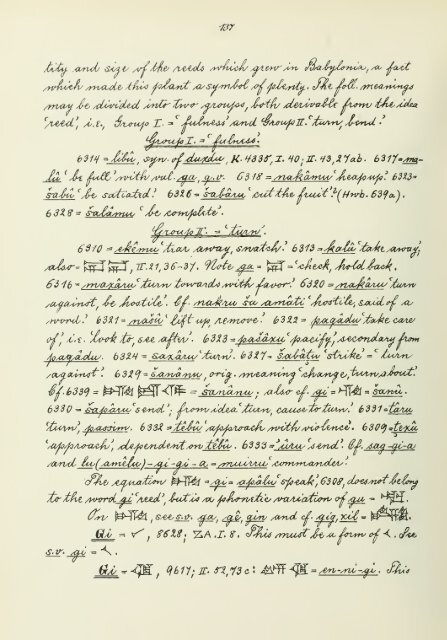 137
tity and size of the reeds which grew in Babylonia, a fact
which made this plant a symbol of plenty. The foll. meanings
may be divided into two groups, both derivable from the idea
'reed', i.e., Group I. = 'fulness' and Group II. 'turn, bend.'
Group I. = 'fulness'.
6314 = libû, syn. of duxdu, K. 4335, I. 40; II. 43, 27ab. 6317 = ma-
lû 'be full' with val. ga, q.v. 6318 = nakâmu 'heap up'. 6323 =
šabû 'be satiated.' 6326 = šabâru 'cut the fruit'? (Hwb. 639a).
6328 = šalâmu 'be complete'.
Group II. = 'turn'.
6310 = ekêmu 'tear away, snatch'. 6313 = kalû 'take away';
also = II. 21, 36-37. Note ga = = 'check, hold back.
6316 = maxâru 'turn towards with favor.' 6320 = nakâru 'turn
against, be hostile'. Cf. nakru ša amâti 'hostile, said of a
word.' 6321 = našû 'lift up, remove.' 6322 = paqâdu 'take care
of', i.e. 'look to, see after'. 6323 = pašâxu 'pacify', secondary from
paqâdu. 6324 = saxâru 'turn'. 6327 = šabâtu 'strike' = 'turn
against.' 6329 = šanânu, orig. meaning 'change, turn about'.
Cf. 6339 = = šanânu; also cf. gi = = šanû.
6330 = šapâru 'send'; from idea 'turn, cause to turn.' 6331 = târu
'turn', passim. 6332 = têbû 'approach with violence'. 6309 = texû
'approach', dependent on têbû. 6333 = 'ûru 'send'. Cf. sag-gi-a
and lu (amêlu)-gi-gi-a = muirru 'commander'.
The equation = gi = apâlu 'speak', 6308, does not belong
to the word gi 'reed', but is a phonetic variation of gu =
On , see s.v. ga, gê, gin and cf. gig, xil =
Gi = , 8628; ZA. I. 8. This must be a form of . See
s.v. gi =
Gi = , 9617; II. 52, 73c: = en-ni-gi. This